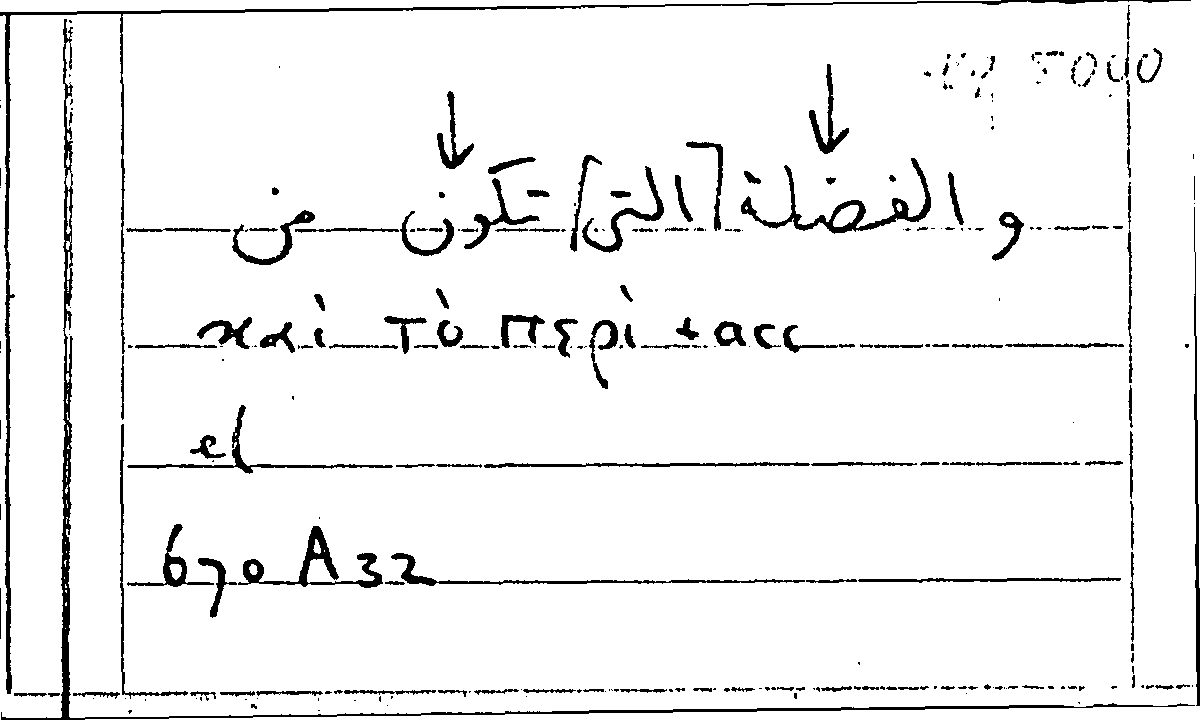 5000
والفضلة [التى] تكون من
καὶ τὸ περὶ + acc
el
670 A 32